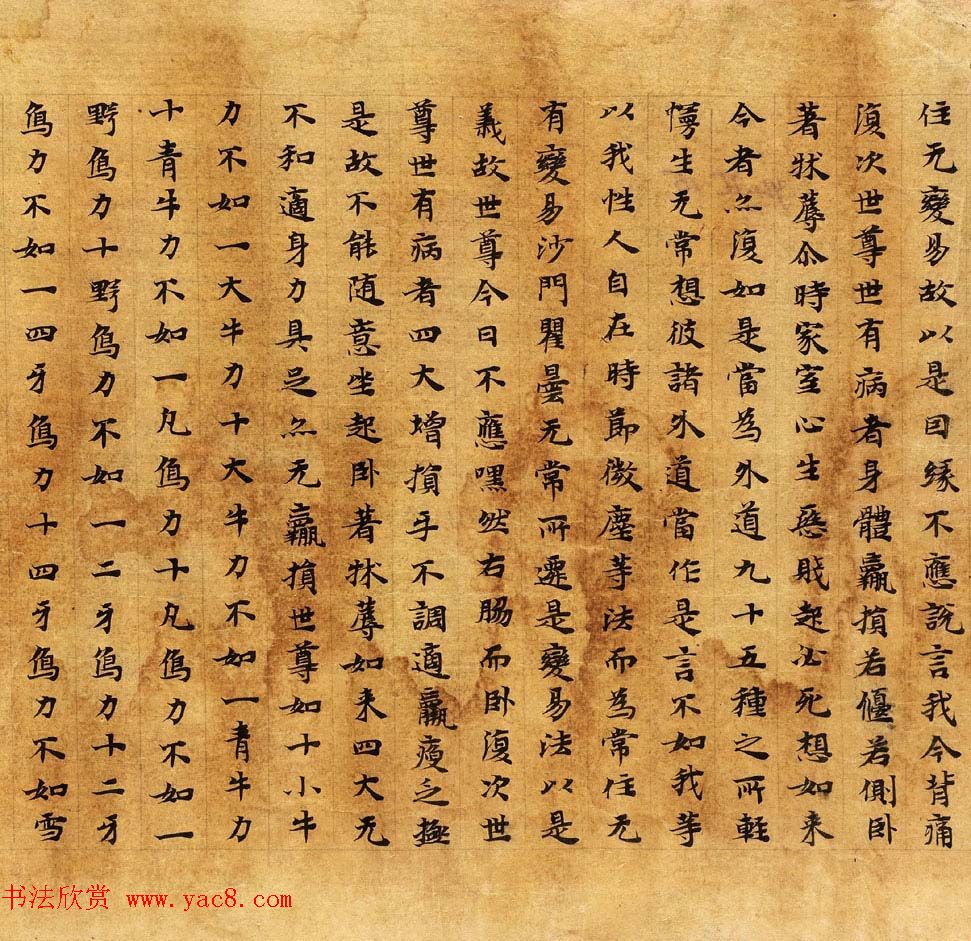 住无變易故以是因緣不應說言我今背痛
復次世尊世有病者身體羸損若偃若側卧
著牀蓐尒時家室心生惡賤起必死想如来
今者亦復如是當為外道九十五種之所輕
慢生无常想彼諸外道當作是言不如我等
以我性人自在時節微塵等法而為常住无
有變易沙門瞿曇无常所遷是變易法以是
義故世尊今日不應嘿然右脇而卧復次世
尊世有病者四大增損手不調適羸瘦乏極
是故不能随意坐起卧著牀蓐如来四大无
不和適身力具足亦无羸損世尊如十小牛
力不如一大牛力十大牛力不如一青牛力
十青牛力不如一凡鳥力十凡鳥力不如一
野鳥力十野鳥力不如一二牙鳥力十二牙
鳥力不如一四牙鳥力十四牙鳥力不如雪
书法欣赏 www.yac8.com